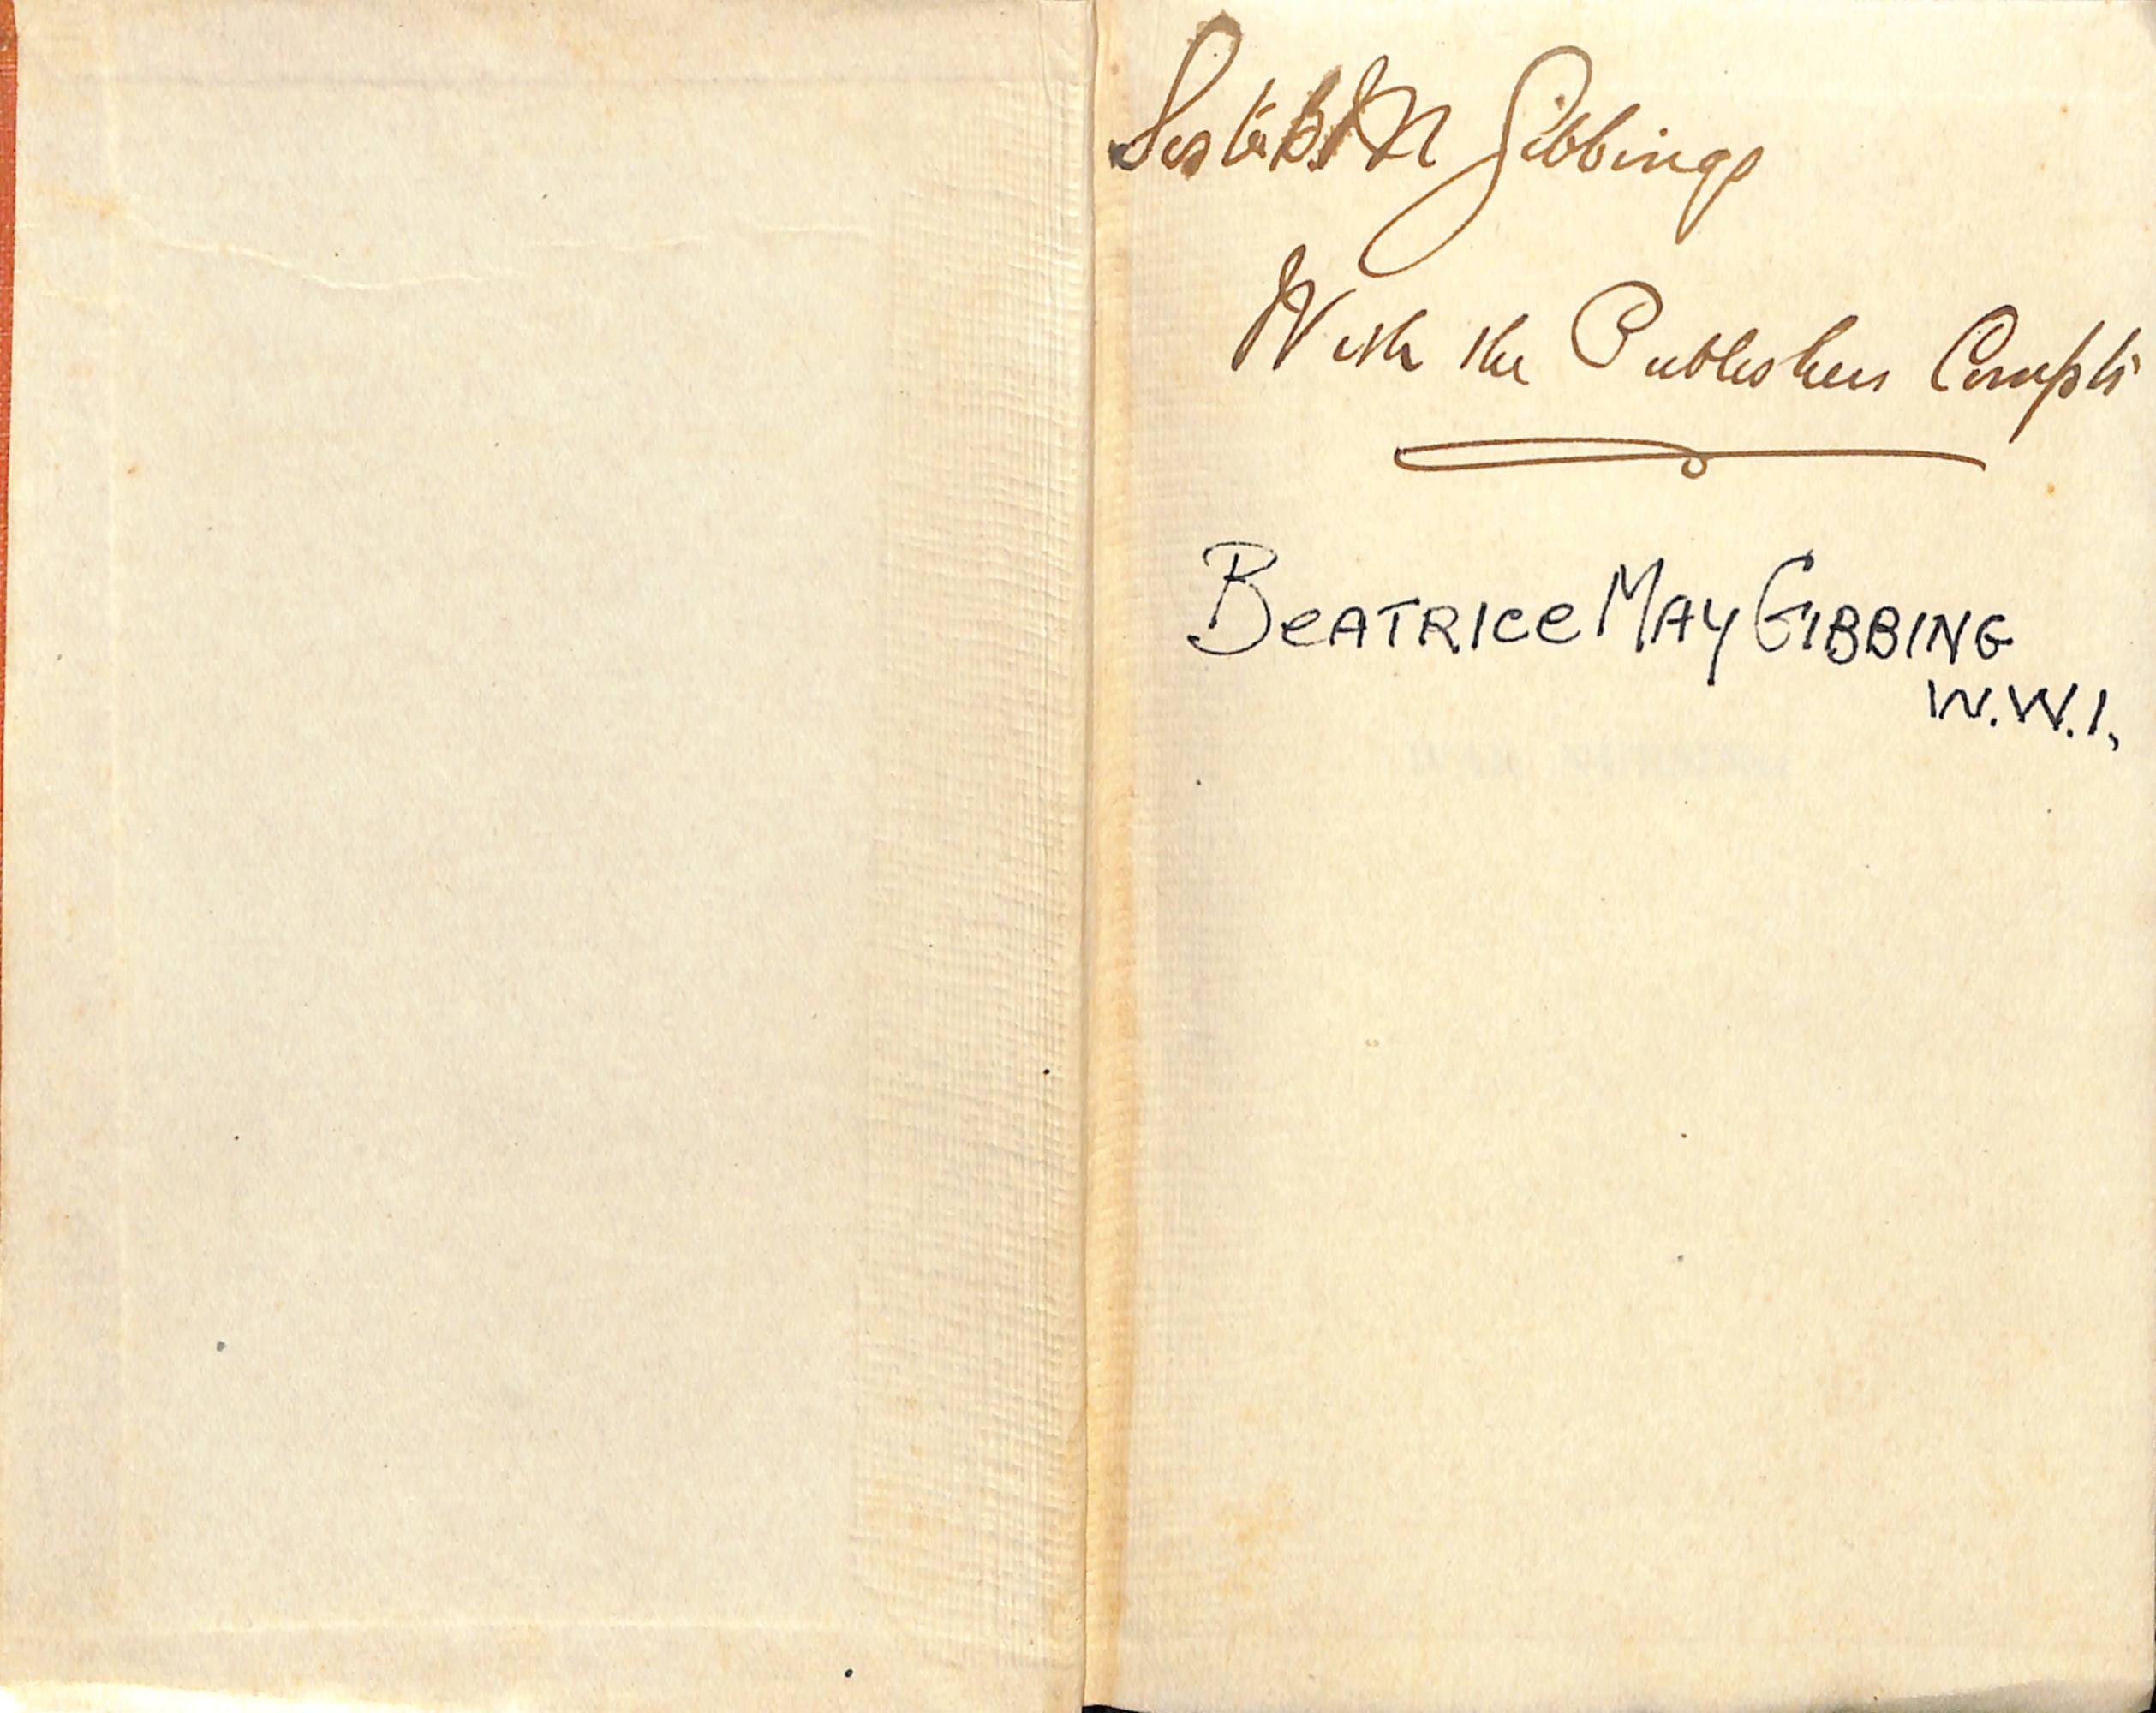 Sister B. M Gibbings
With the Publishers Complts
BEATRICE MAY GIBBING
W.W.I.